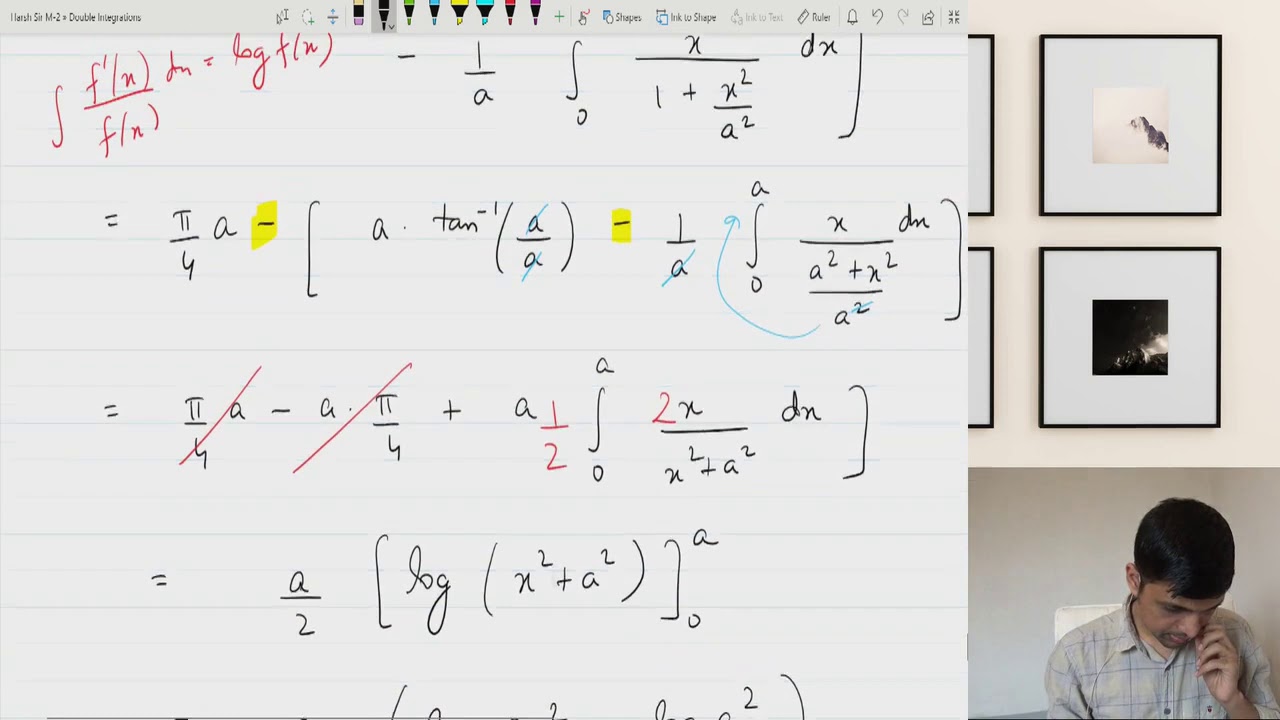 Harsh Sir M-2 » Double Integrations
Shapes Ink to Shape Ink to Text Ruler
∫ f'(x)/f(x) dx = log f(x)
- 1/a ∫₀ x/(1 + x²/a²) dx ]
= π/4 a - [ a · tan⁻¹(a/a) - 1/a ∫₀ᵃ x/((a² + x²)/a²) dx ]
= π/4 a - a · π/4 + a 1/2 ∫₀ᵃ 2x/(x² + a²) dx ]
= a/2 [ log (x² + a²) ]₀ᵃ